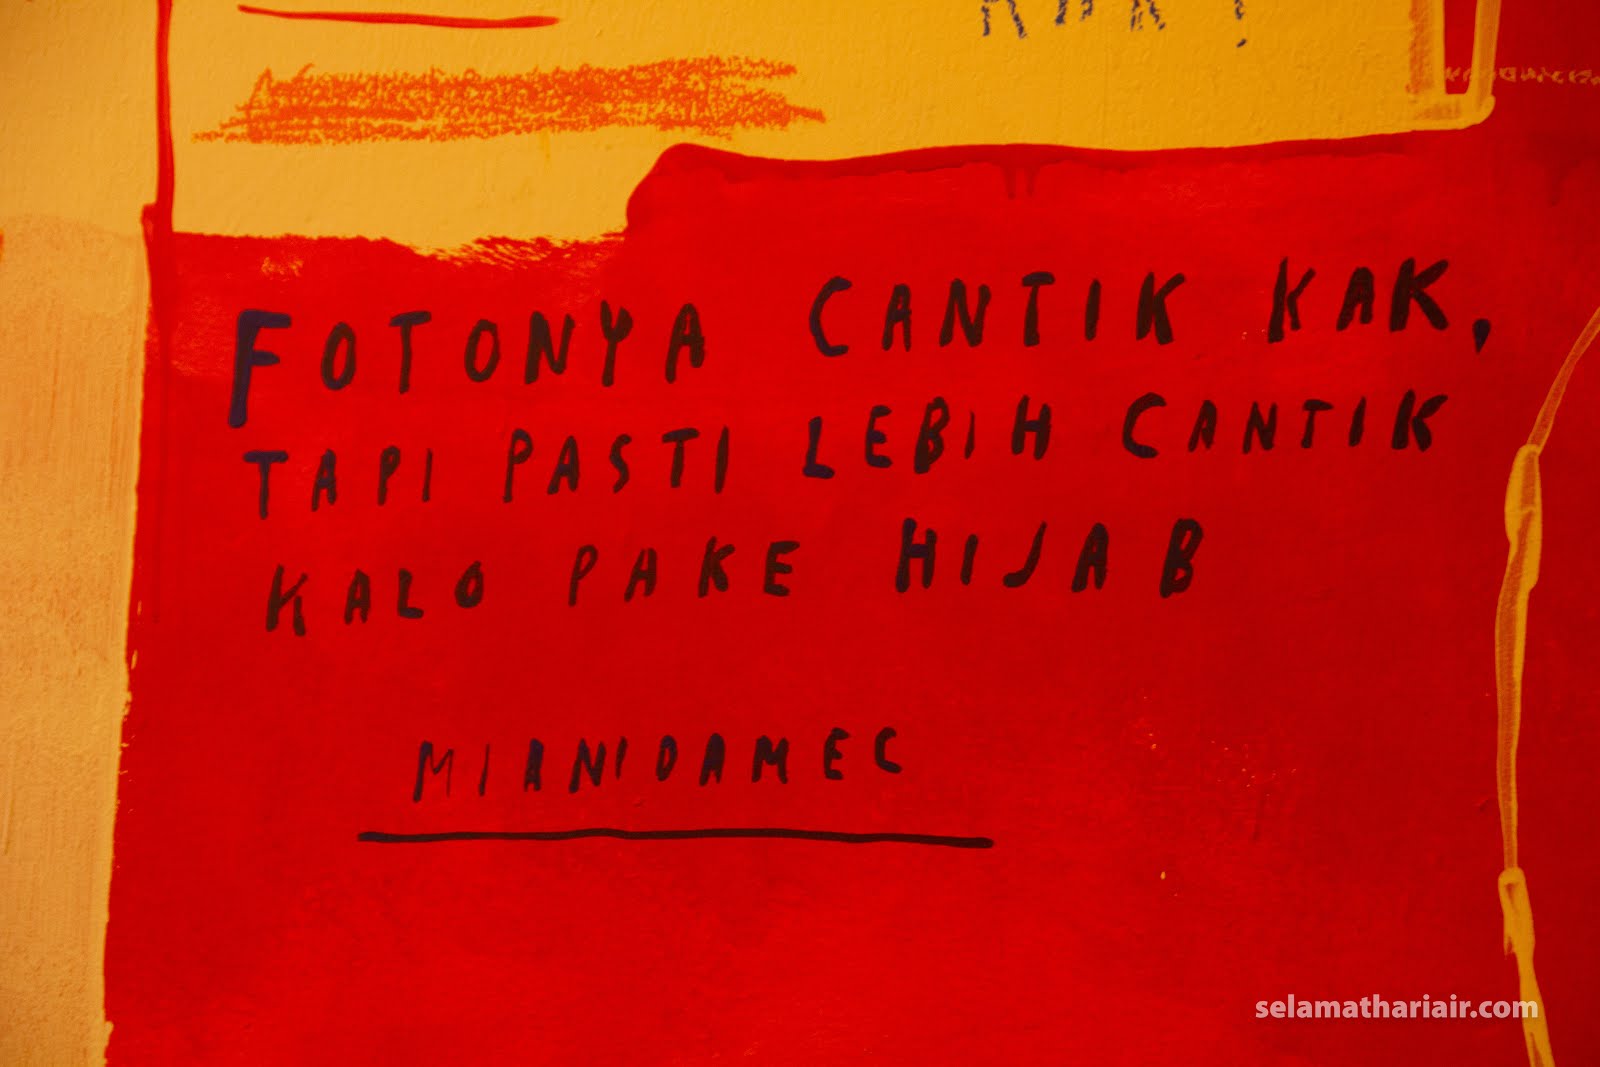 FOTONYA CANTIK KAK,
TAPI PASTI LEBIH CANTIK
KALO PAKE HIJAB
MIANIDAMEC
selamathariair.com